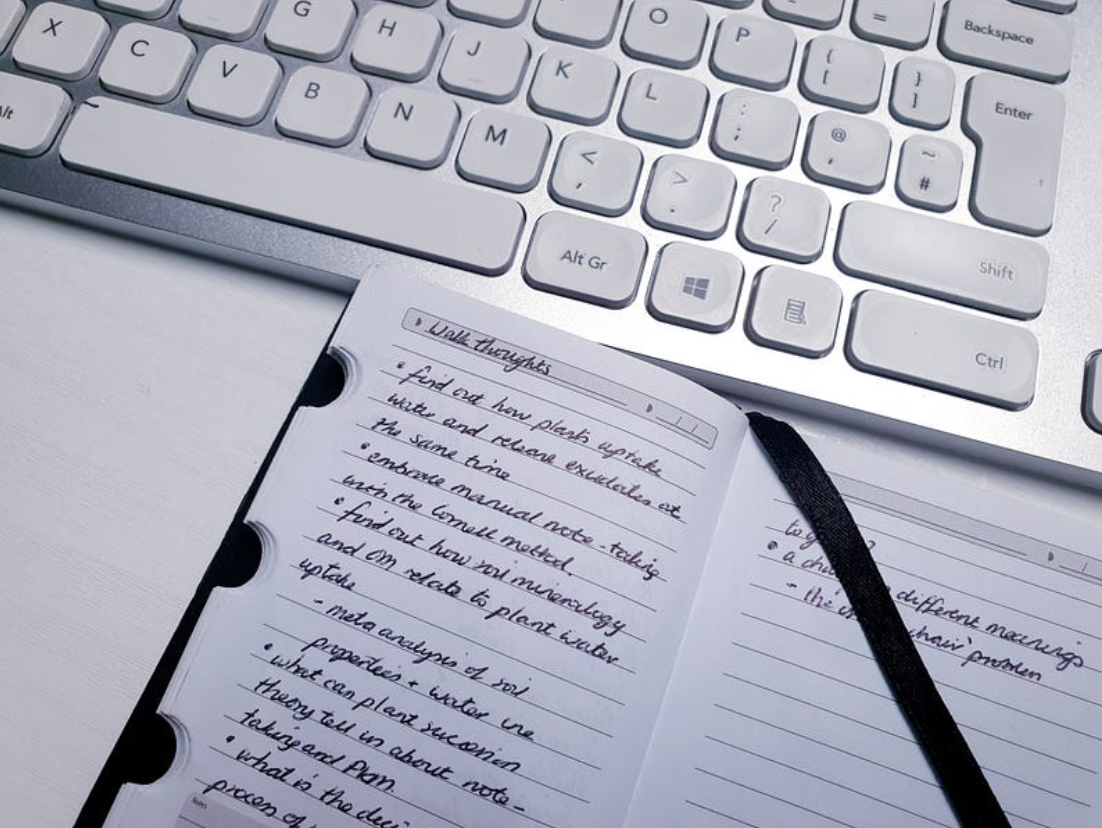 G
O
P
_
-
=
Backspace
X
C
V
B
H
J
K
L
{
[
}
]
Enter
Alt
N
M
:
;
@
'
~
#
<
,
>
.
?
/
Shift
Alt Gr
Ctrl
Walk thoughts
• find out how plants uptake
water and release exudates at
the same time
• embrace manual note-taking
with the Cornell method.
• find out how soil mineralogy
and OM relate to plant water
uptake
- meta analysis of soil
properties + water use
• what can plant succession
theory tell us about note-
taking and Plan.
• what is the
process of
Notes
to
• a different meanings
- the chair problem